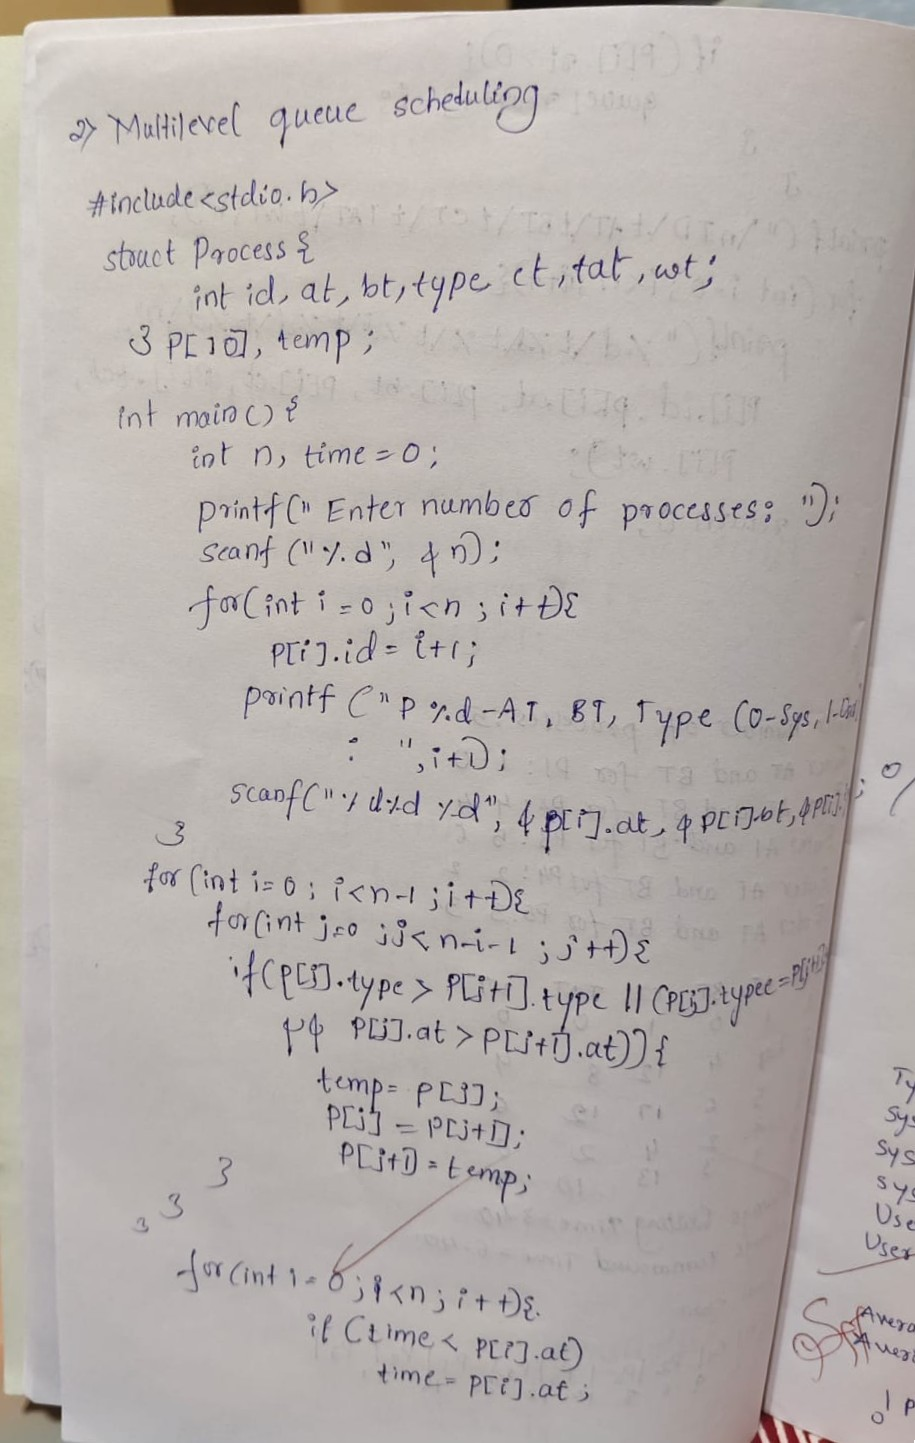 2) Multilevel queue scheduling
#include<stdio.h>
struct Process {
int id, at, bt, type, ct, tat, wt;
} P[10], temp;
int main() {
int n, time = 0;
printf(" Enter number of processes: ");
scanf ("%d", &n);
for(int i = 0; i<n; i++){
P[i].id = i+1;
printf (" P %d - AT, BT, Type (0-Sys, 1-
: ", i+1);
scanf("%d%d %d", &p[i].at, &P[i].bt, &P[i].
}
for (int i=0; i<n-1; i++){
for(int j=0; j<n-i-1; j++){
if(P[j].type > P[j+1].type || (P[j].type==P[j+1]
&& P[j].at > P[j+1].at)){
temp= P[j];
P[j] = P[j+1];
P[j+1] = temp;
}
}
}
for(int i = 0; i<n; i++){
if (time < P[i].at)
time = P[i].at;
Ty
Sys
Sys
Sys
Use
User
Avera
Avera